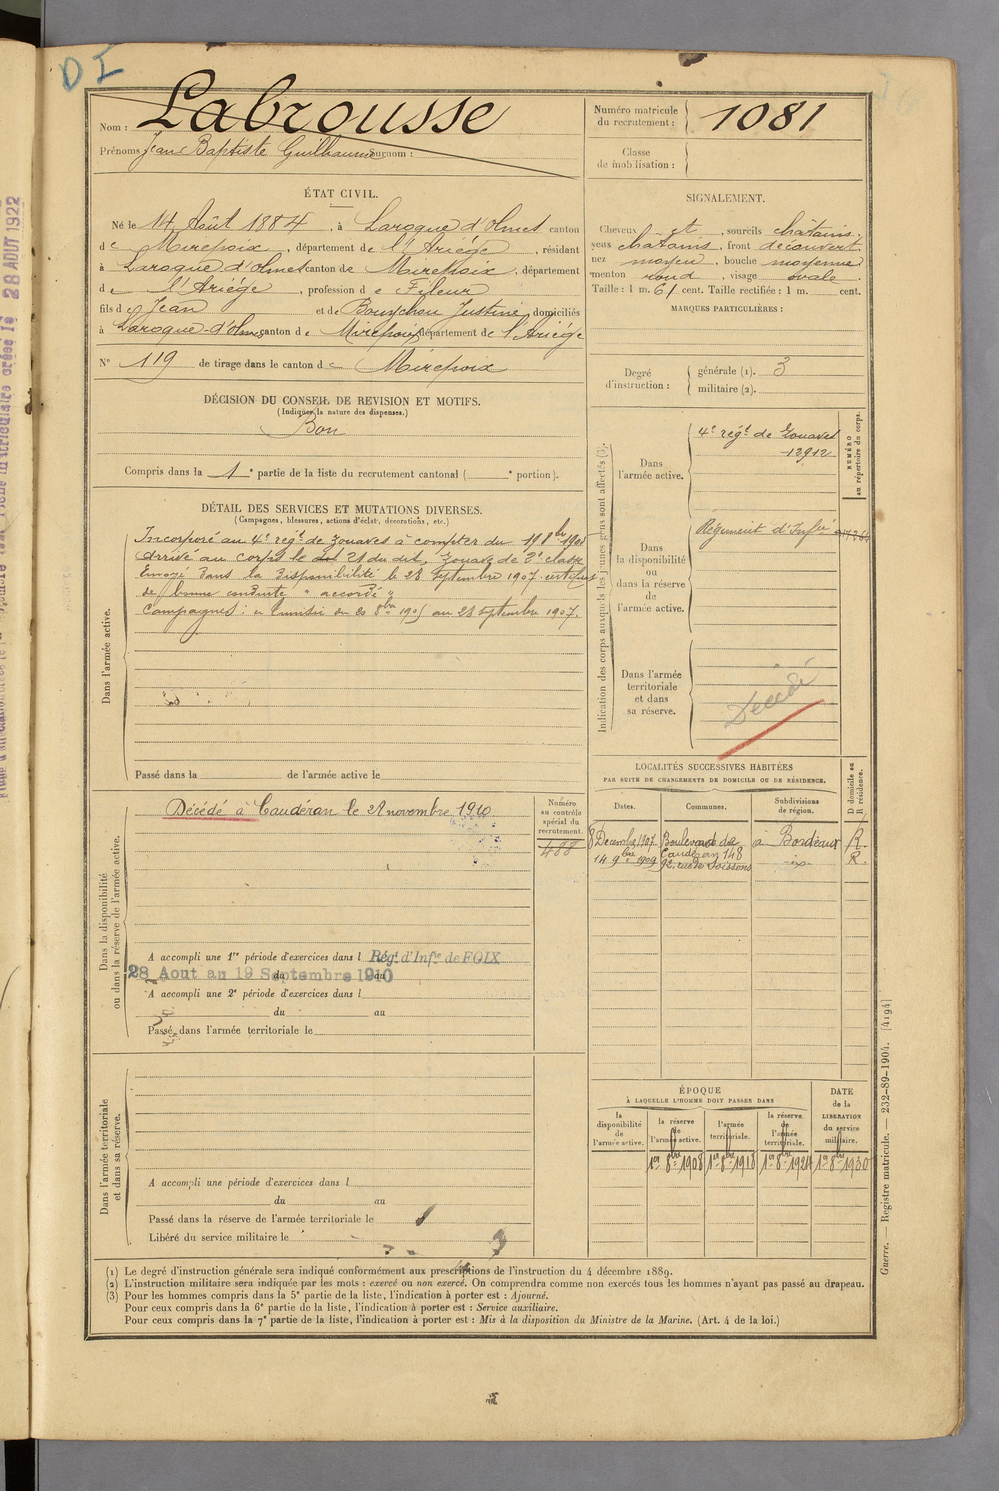 DI
Nom : Labrousse
Prénoms Jean Baptiste Guilhaume Surnom :
Numéro matricule du recrutement : 1081
Classe de mobilisation :
ÉTAT CIVIL.
Né le 14 Août 1884, à Laroque d'Olmes canton
de Mirepoix, département de l'Ariége, résidant
à Laroque d'olmes canton de Mirepoix, département
de l'Ariége, profession de Fileur
fils de Jean et de Bouychou Justine, domiciliés
à Laroque-d'olmes canton de Mirepoix département de l'Ariége
N° 119 de tirage dans le canton de Mirepoix
SIGNALEMENT.
Cheveux et, sourcils châtains.
yeux châtains, front découvert
nez moyen, bouche moyenne
menton rond, visage ovale.
Taille : 1 m. 61 cent. Taille rectifiée : 1 m. cent.
MARQUES PARTICULIÈRES :
DÉCISION DU CONSEIL DE REVISION ET MOTIFS.
(Indiquer la nature des dispenses.)
Bon
Compris dans la 1e partie de la liste du recrutement cantonal ( e portion).
Degré d'instruction :
générale (1). 3
militaire (2).
DÉTAIL DES SERVICES ET MUTATIONS DIVERSES.
(Campagnes, blessures, actions d'éclat, décorations, etc.)
Dans l'armée active.
Incorporé au 4e régt de Zouaves à compter du
arrivé au corps le dit 21 du dit, Zouave de 2e classe
Envoyé dans la disponibilité le 28 septembre 1907. certificat
de "bonne conduite" accordé"
Campagnes : en Tunisie du 20 8bre 1905 au 28 septembre 1907.
Passé dans la de l'armée active le
Indication des corps auxquels les jeunes gens sont affectés (3).
NUMÉRO au répertoire du corps.
Dans l'armée active.
4e régt de Zouaves
12912
Dans la disponibilité ou dans la réserve de l'armée active.
Régiment d'Infie
Dans l'armée territoriale et dans sa réserve.
Décédé
LOCALITÉS SUCCESSIVES HABITÉES
PAR SUITE DE CHANGEMENTS DE DOMICILE OU DE RÉSIDENCE.
Dates. Communes. Subdivisions de région. D domicile ou R résidence.
8 Décembre 1907 Boulevard de Caudéran 148 à Bordeaux R.
14 9bre 1909 92, rue de Soissons R.
Dans la disponibilité ou dans la réserve de l'armée active.
Décédé à Caudéran le 21 novembre 1910
Numéro au contrôle spécial du recrutement.
488
A accompli une 1re période d'exercices dans l Régt d'Infie de FOIX
28 Aout au 19 Septembre 1910
du au
A accompli une 2e période d'exercices dans l
du au
Passé dans l'armée territoriale le
Dans l'armée territoriale et dans sa réserve.
A accompli une période d'exercices dans l
du au
Passé dans la réserve de l'armée territoriale le
Libéré du service militaire le
ÉPOQUE
À LAQUELLE L'HOMME DOIT PASSER DANS
la disponibilité de l'armée active. la réserve de l'armée active. l'armée territoriale. la réserve de l'armée territoriale.
DATE de la LIBÉRATION du service militaire.
1er 8bre 1908 1er 8bre 1918 1er 8bre 1924 1er 8bre 1930
Guerre. — Registre matricule. — 232-89-1904. [4194]
(1) Le degré d'instruction générale sera indiqué conformément aux prescriptions de l'instruction du 4 décembre 1889.
(2) L'instruction militaire sera indiquée par les mots : exercé ou non exercé. On comprendra comme non exercés tous les hommes n'ayant pas passé au drapeau.
(3) Pour les hommes compris dans la 5e partie de la liste, l'indication à porter est : Ajourné.
Pour ceux compris dans la 6e partie de la liste, l'indication à porter est : Service auxiliaire.
Pour ceux compris dans la 7e partie de la liste, l'indication à porter est : Mis à la disposition du Ministre de la Marine. (Art. 4 de la loi.)